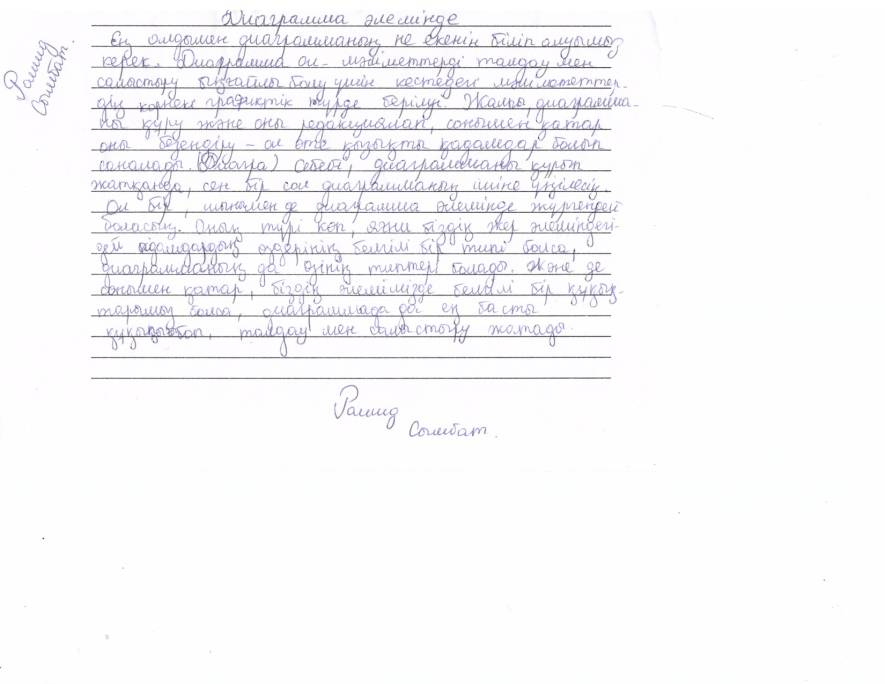 Диаграмма әлемінде
Ең алдымен диаграмманың не екенін біліп алуымыз
керек. Диаграмма ол - мәліметтерді талдау мен
салыстыру ыңғайлы болу үшін кестедегі мәліметтер-
дің көрнекі графиктік түрде берілуі. Жалпы, диаграмма-
ны құру және оны редакциялап, сонымен қатар
оны безендіру – ол өте қызықты қадамдар болып
саналады. (Диагра) Себебі, диаграмманы құрып
жатқанда, сен бір сол диаграмманың ішіне үңілесің.
Ол бір, шынымен де диаграмма әлемінде жүргендей
боласың. Оның түрі көп, яғни біздің жер әлеміндегі-
дей адамдардың өздерінің белгілі бір типі болса,
диаграмманың да өзінің типтері болады. Және де
сонымен қатар, біздің әлемімізде белгілі бір құқық-
тарымыз болса, диаграммада да ең басты
талдау мен салыстыру жатады.
Рашид
Сымбат.
Рашид
Сымбат.